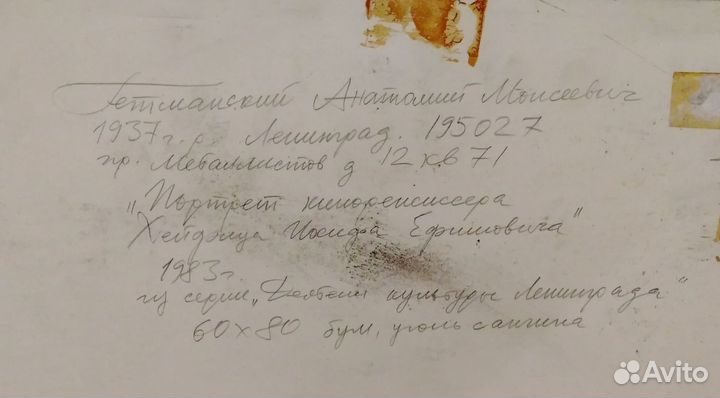 Гетманский Анатолий Моисеевич
1937 г.р. Ленинград. 195027
пр. Металлистов д 12 кв 71
"Портрет кинорежиссера
Хейфица Иосифа Ефимовича"
1983г.
из серии „Деятели культуры Ленинграда"
60х80 бум, уголь сангина
Avito